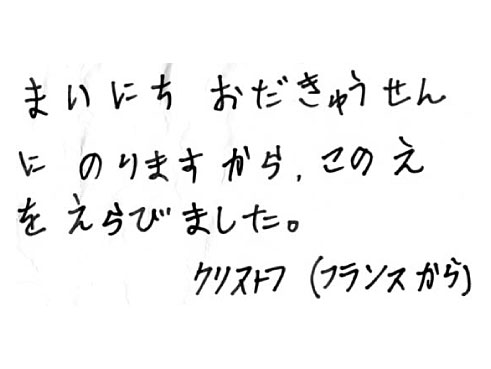 まいにち おだきゅうせん
に のりますから、この え
を えらびました。
クリストフ (フランスから)